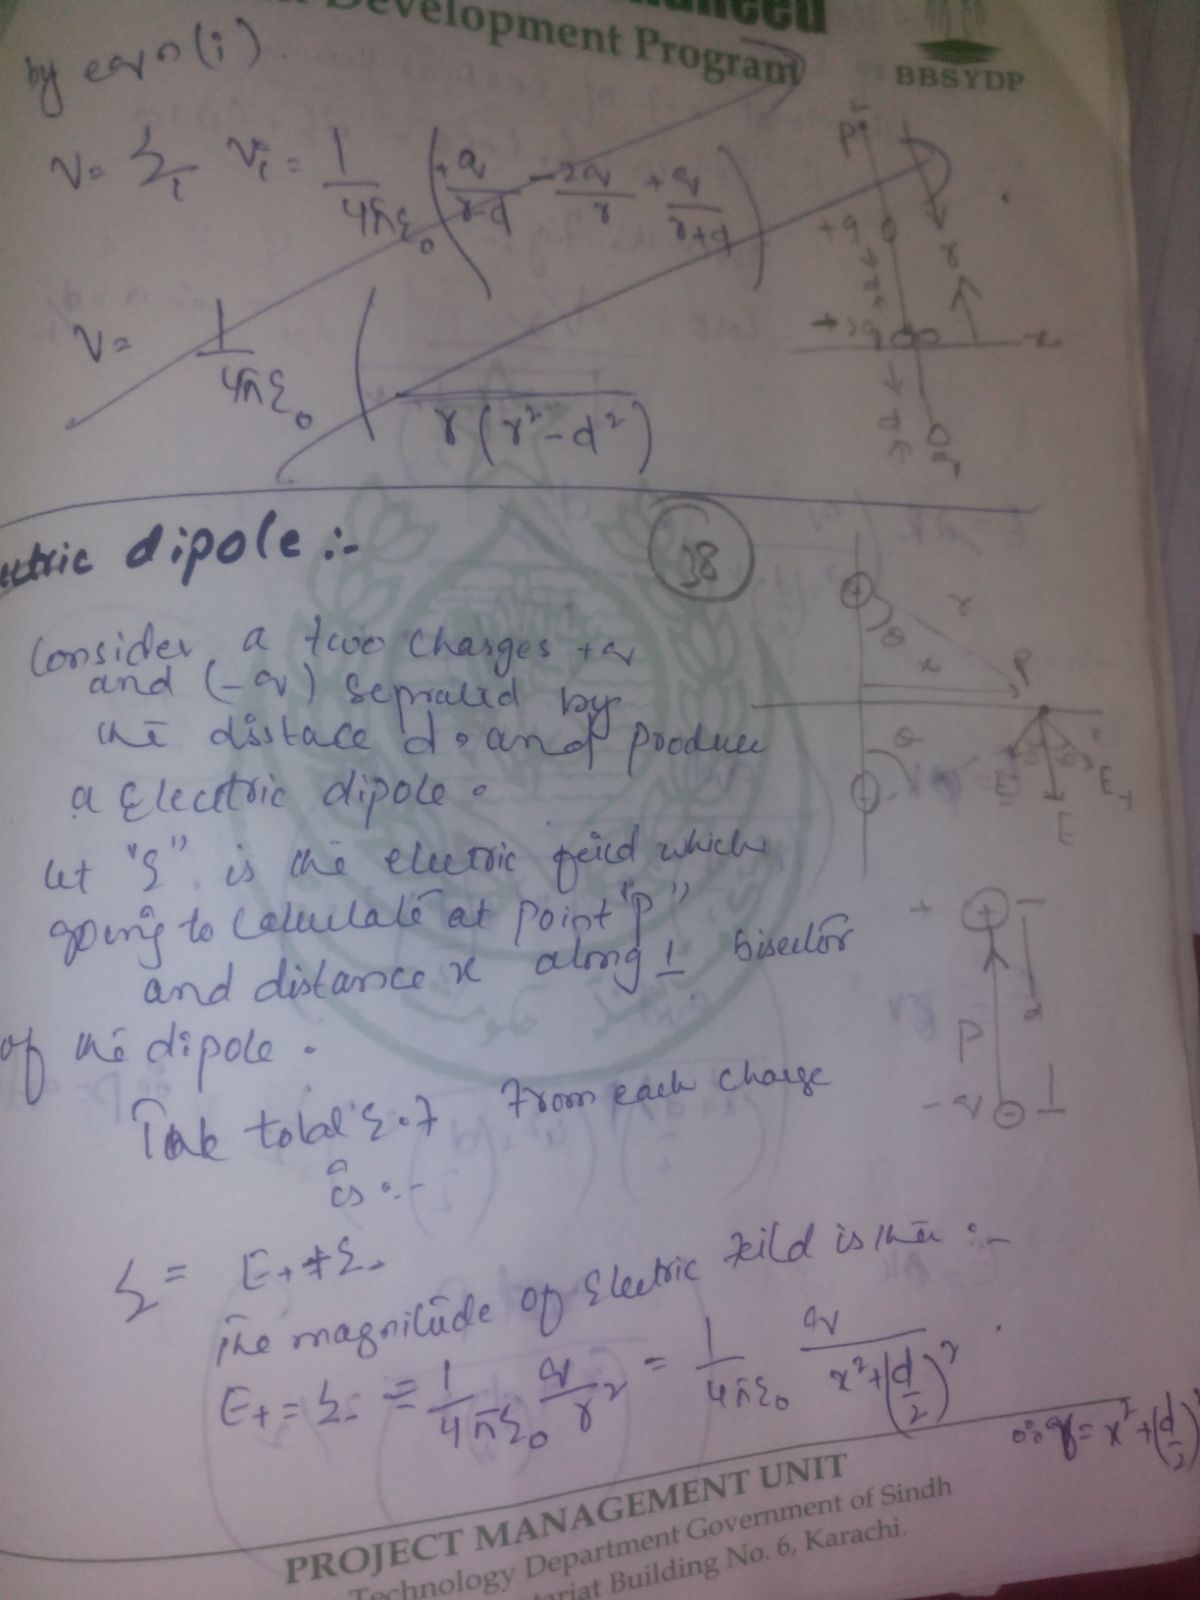 Development Program
BBSYDP
by eqn (i).
V = Σi Vi = 1/4πε0 (+q/r-d - 2q/r + q/r+d)
V = 1/4πε0 ( / r(r²-d²)
P
+q
r
+2q
x
d
q
ectric dipole :-
38
Consider a two charges +q
and (-q) seprated by
the distace d. and produce
a Electric dipole.
let "E" is the electric feild which
going to calculate at point "P"
and distance x along ⊥ bisector
of the dipole.
+
r
θ
x
P
θ
E-
E+
E
-
+ +
d
P
-q -
Tak total E.F From each charge
is :-
E = E+ + E-
The magnitude of Electric Feild is the :-
E+ = E- = 1/4πε0 q/r² = 1/4πε0 q/x²+(d/2)²
∴ r = x²+(d/2)²
PROJECT MANAGEMENT UNIT
Technology Department Government of Sindh
tariat Building No. 6, Karachi.